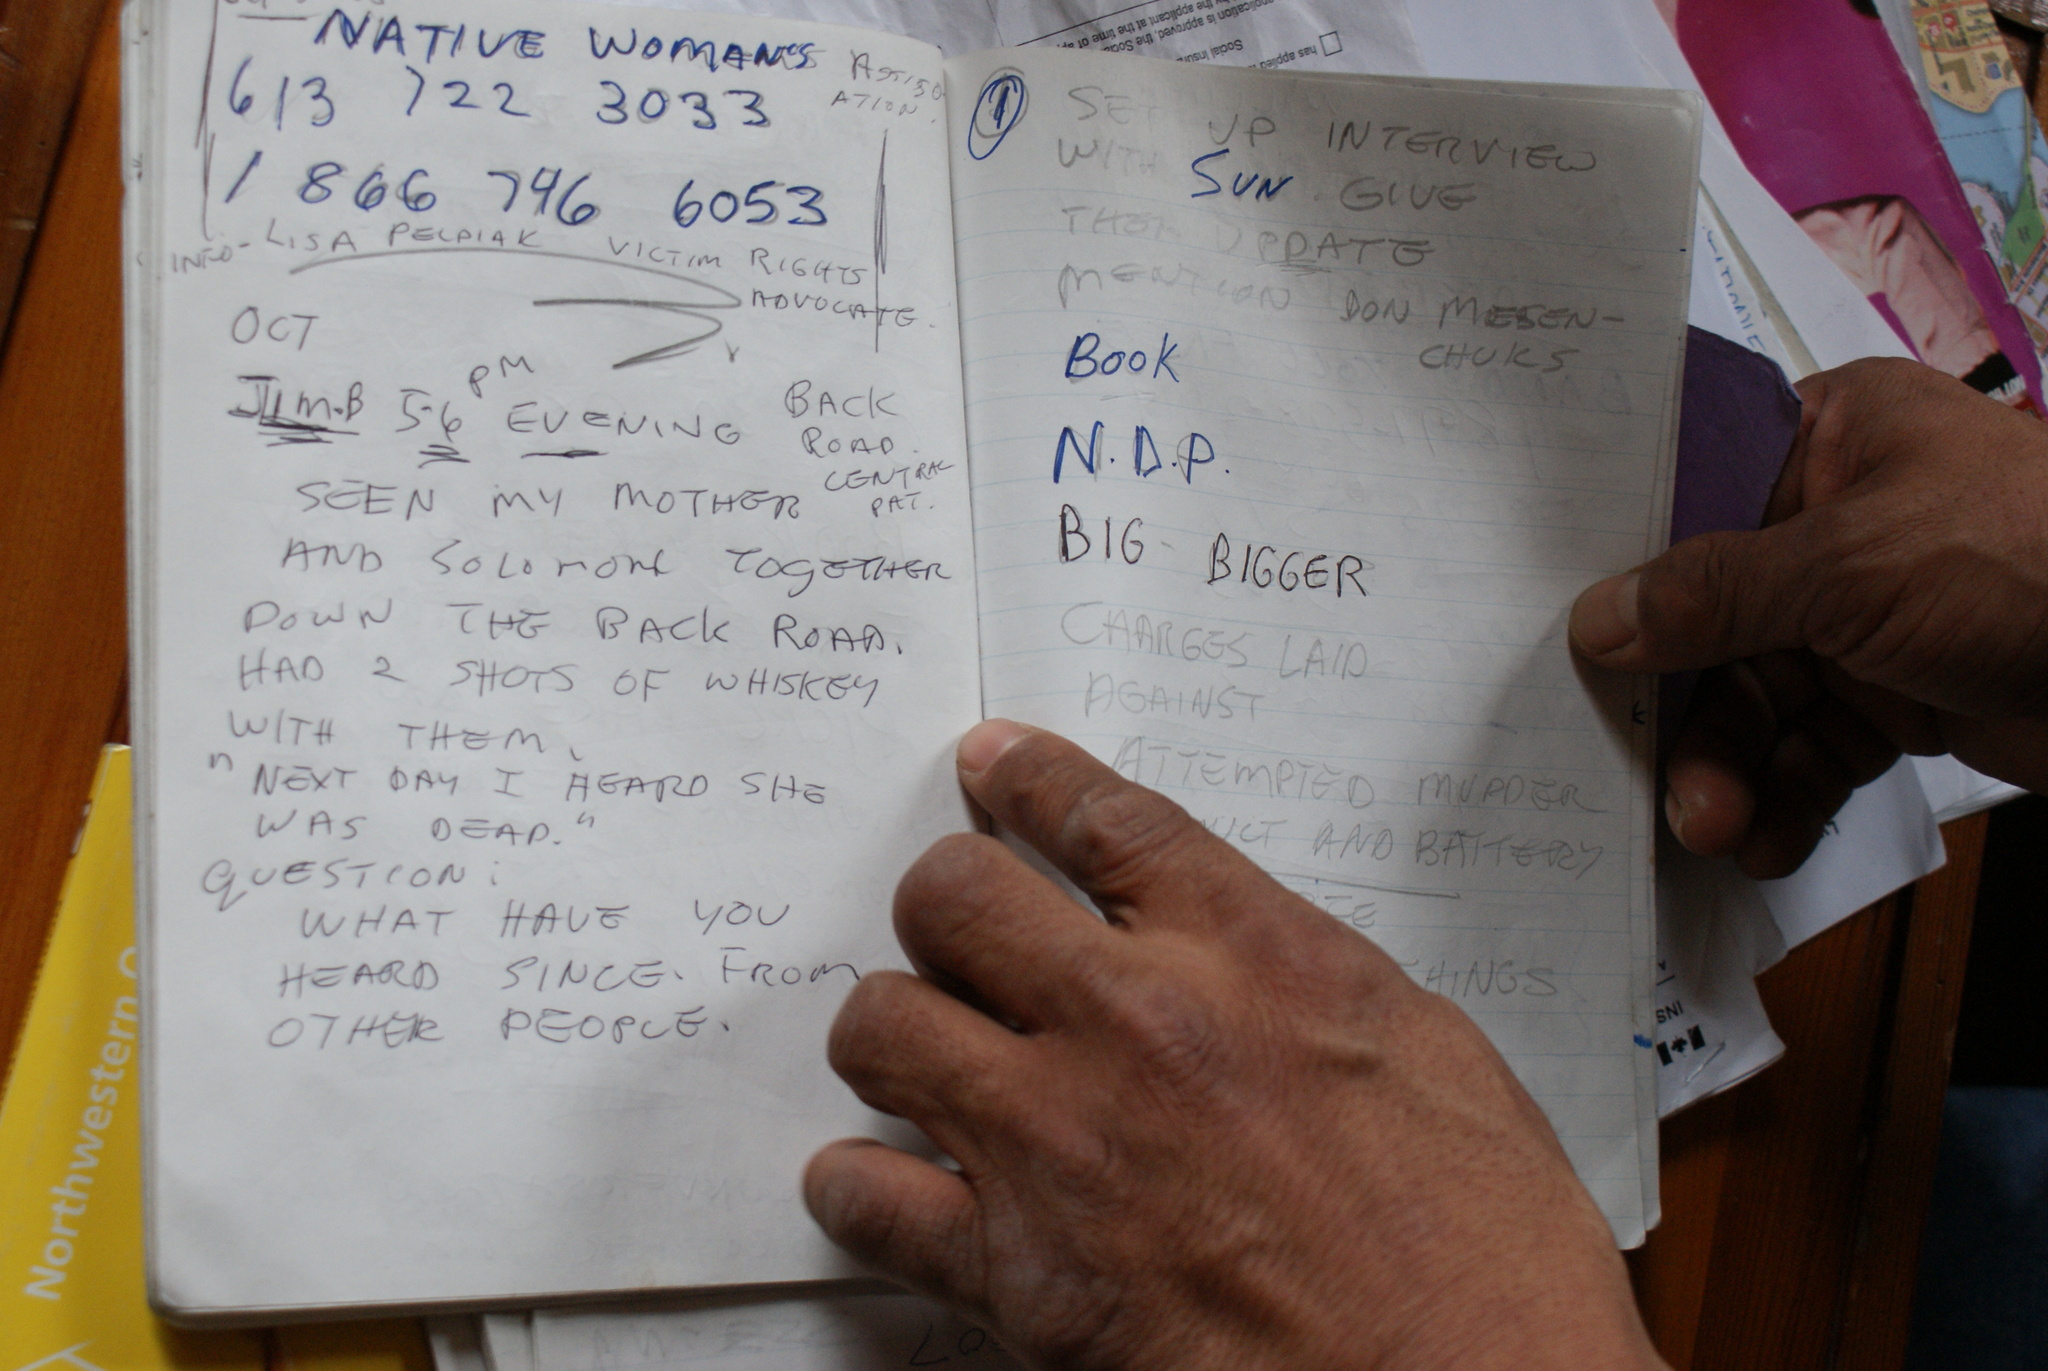 NATIVE WOMAN'S ASSISO-
ATION.
613 722 3033
1 866 796 6053
INFO- LISA PELPIAK VICTIM RIGHTS
ADVOCATE.
OCT
JIM.B 5-6 PM EVENING BACK
ROAD.
CENTRAL
PAT.
SEEN MY MOTHER
AND SOLOMONE TOGETHER
DOWN THE BACK ROAD.
HAD 2 SHOTS OF WHISKEY
WITH THEM.
"NEXT DAY I HEARD SHE
WAS DEAD."
QUESTION:
WHAT HAVE YOU
HEARD SINCE. FROM
OTHER PEOPLE.
1 SET UP INTERVIEW
WITH SUN. GIVE
THEM UPDATE
MENTION DON MESEN-
CHUKS
BOOK
N.D.P.
BIG- BIGGER
CHARGES LAID
AGAINST
ATTEMPTED MURDER
AND BATTERY
THINGS
Northwestern O
has applied
Social insur
pplication is approved, the Soc
by the applicant at the time of ap